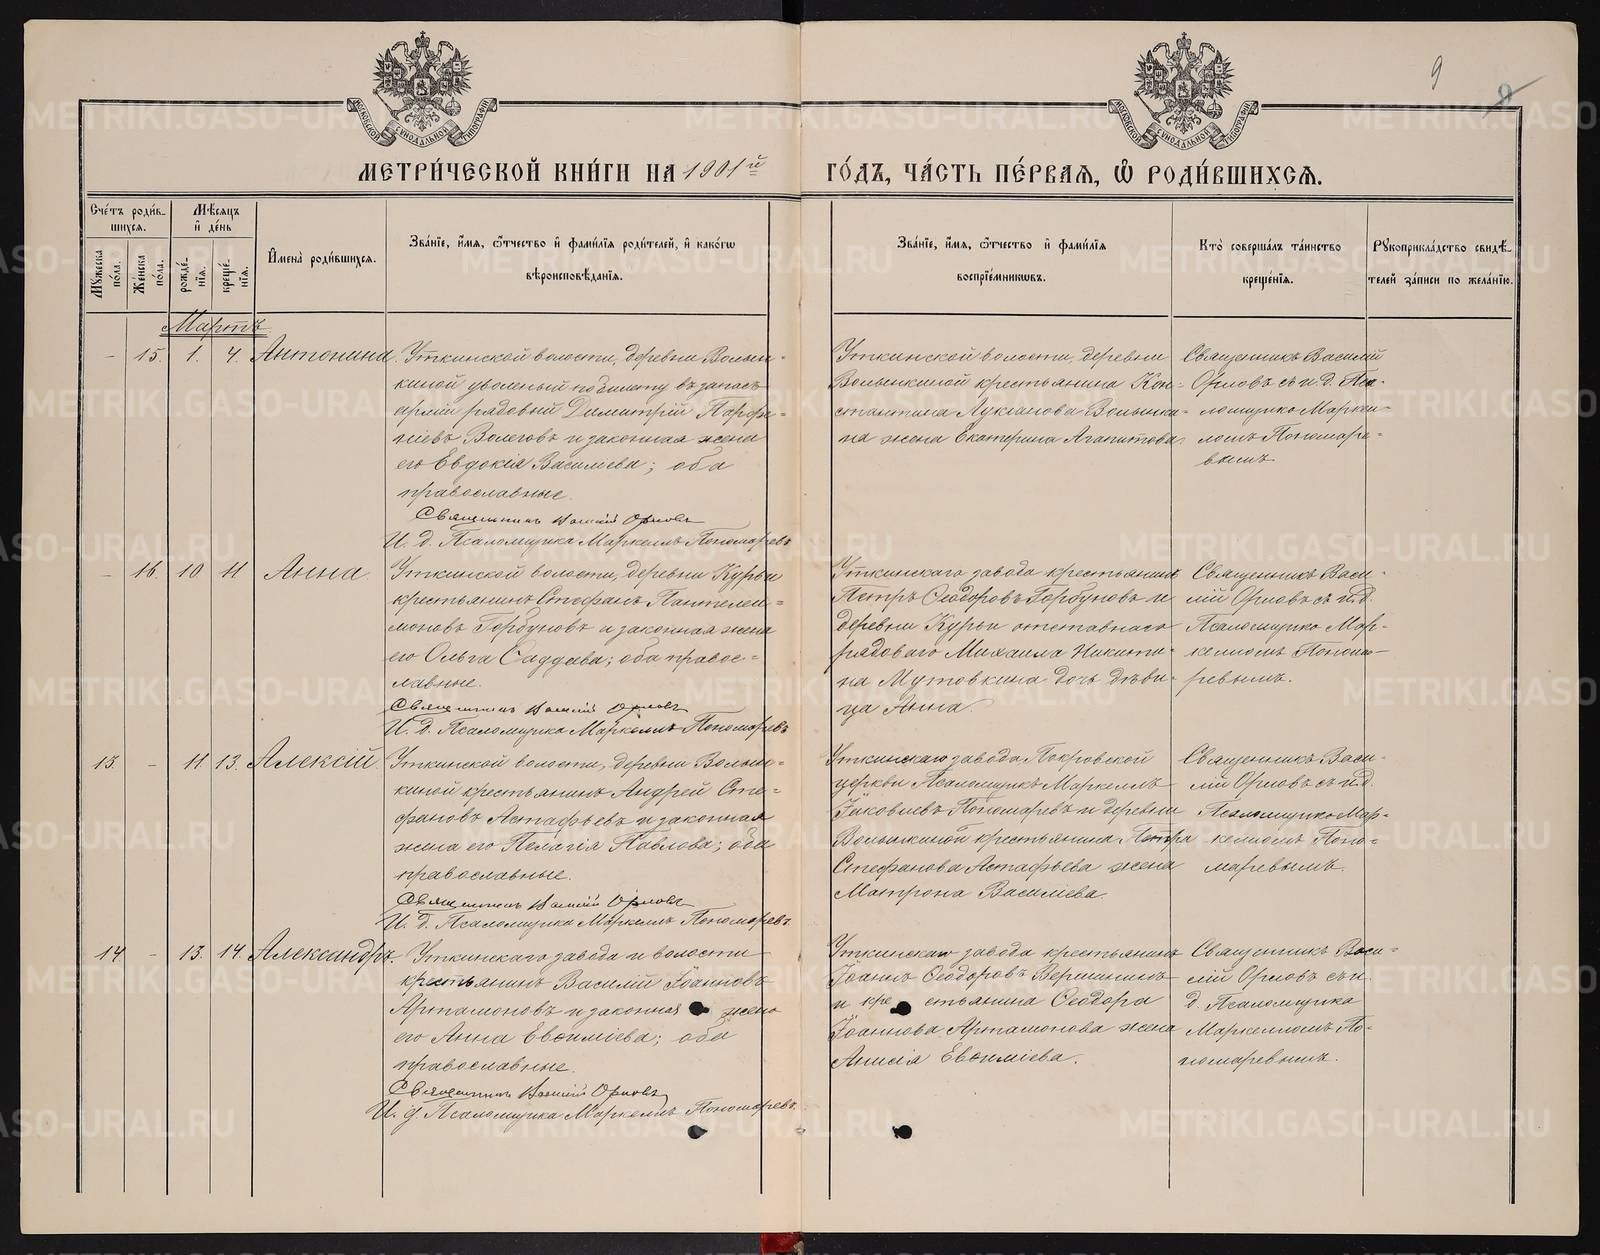 МЕТРИ́ЧЕСКОЙ КНИ́ГИ НА 1901й
ГО́ДЪ, ЧА́СТЬ ПЕ́РВАЯ, Ѽ РОДИ́ВШИХСЯ.
9
Сче́тъ роди́в-
шихся.
Мꙋжеска пола.
Женска пола.
Мѣсяцъ и де́нь
рожде́нїя.
креще́нїя.
И҆мена̀ роди́вшихся.
Зва́нїе, и҆́мя, ѻ҆́тчество и҆ фами́лїя роди́телей, и҆ како́гѡ
вѣроисповѣ́данїя.
Зва́нїе, и҆́мя, ѻ҆́тчество и҆ фами́лїя
воспрїе́мниковъ.
Кто̀ соверша́лъ та́инство
креще́нїя.
Рꙋкоприкла́дство свидѣ́-
телей за́писи по жела́нїю.
Мартъ
- 15. 1. 4. Антонина.
Уткинской волости, деревни Волын-
киной уволеный по билету въ запасъ
арміи рядовый Димитрій Парфе-
ніевъ Волеговъ и законная жена
его Евдокія Василіева; оба
православные.
Священникъ Василій Орловъ
И. д. Псаломщика Маркеллъ Пономаревъ
Уткинской волости, деревни
Волынкиной крестьянина Кон-
стантина Лукіанова Волынки-
на жена Екатерина Агапитова.
Священникъ Василій
Орловъ съ и. д. Пса-
ломщика Маркел-
ломъ Пономаре-
вымъ
- 16. 10 11 Анна.
Уткинской волости, деревни Курьи
крестьянинъ Стефанъ Пантелеи-
моновъ Горбуновъ и законная жена
его Ольга Саддеева; оба правос-
лавные.
Священникъ Василій Орловъ
И. д. Псаломщика Маркеллъ Пономаревъ
Уткинскаго завода крестьянинъ
Петръ Ѳеодоровъ Горбуновъ и
деревни Курьи отставнаго
рядоваго Михаила Никити-
на Мутовкина дочь дѣви-
ца Анна.
Священникъ Васи-
лій Орловъ съ и.д.
Псаломщика Мар-
келломъ Понома-
ревымъ.
13. - 11 13. Алексій.
Уткинской волости, деревни Волын-
киной крестьянинъ Андрей Сте-
фановъ Астафьевъ и законная
жена его Пелагія Павлова; оба
православные.
Священникъ Василій Орловъ
И. д. Псаломщика Маркеллъ Пономаревъ.
Уткинскаго завода Покровской
церкви Псаломщикъ Маркеллъ
Іаковлевъ Пономаревъ и деревни
Волынкиной крестьянина Петра
Стефанова Астафьева жена
Матрона Василіева.
Священникъ Васи-
лій Орловъ съ и.д.
Псаломщика Мар-
келломъ Поно-
маревымъ.
14 - 13. 14. Александръ.
Уткинскаго завода и волости
крестьянинъ Василій Іоанновъ
Артамоновъ и законная жена
его Анна Евѳиміева; оба
православные.
Священникъ Василій Орловъ
И. д. Псаломщика Маркеллъ Пономаревъ.
Уткинскаго завода крестьянинъ
Іоаннъ Ѳеодоровъ Вершининъ
и крестьянина Ѳеодора
Іоаннова Артамонова жена
Анисія Евѳиміева.
Священникъ Васи-
лій Орловъ съ и.
д. Псаломщика
Маркелломъ По-
номаревымъ.